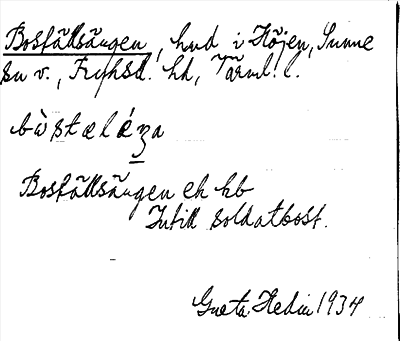 Bosfällsängen, hmd i Höjen, Sunne
sn v., Fryksd. hd, Värml. l.
bòstælǽŋa
Bosfällsängen ek hb
Intill soldatbost.
Greta Hedin 1934